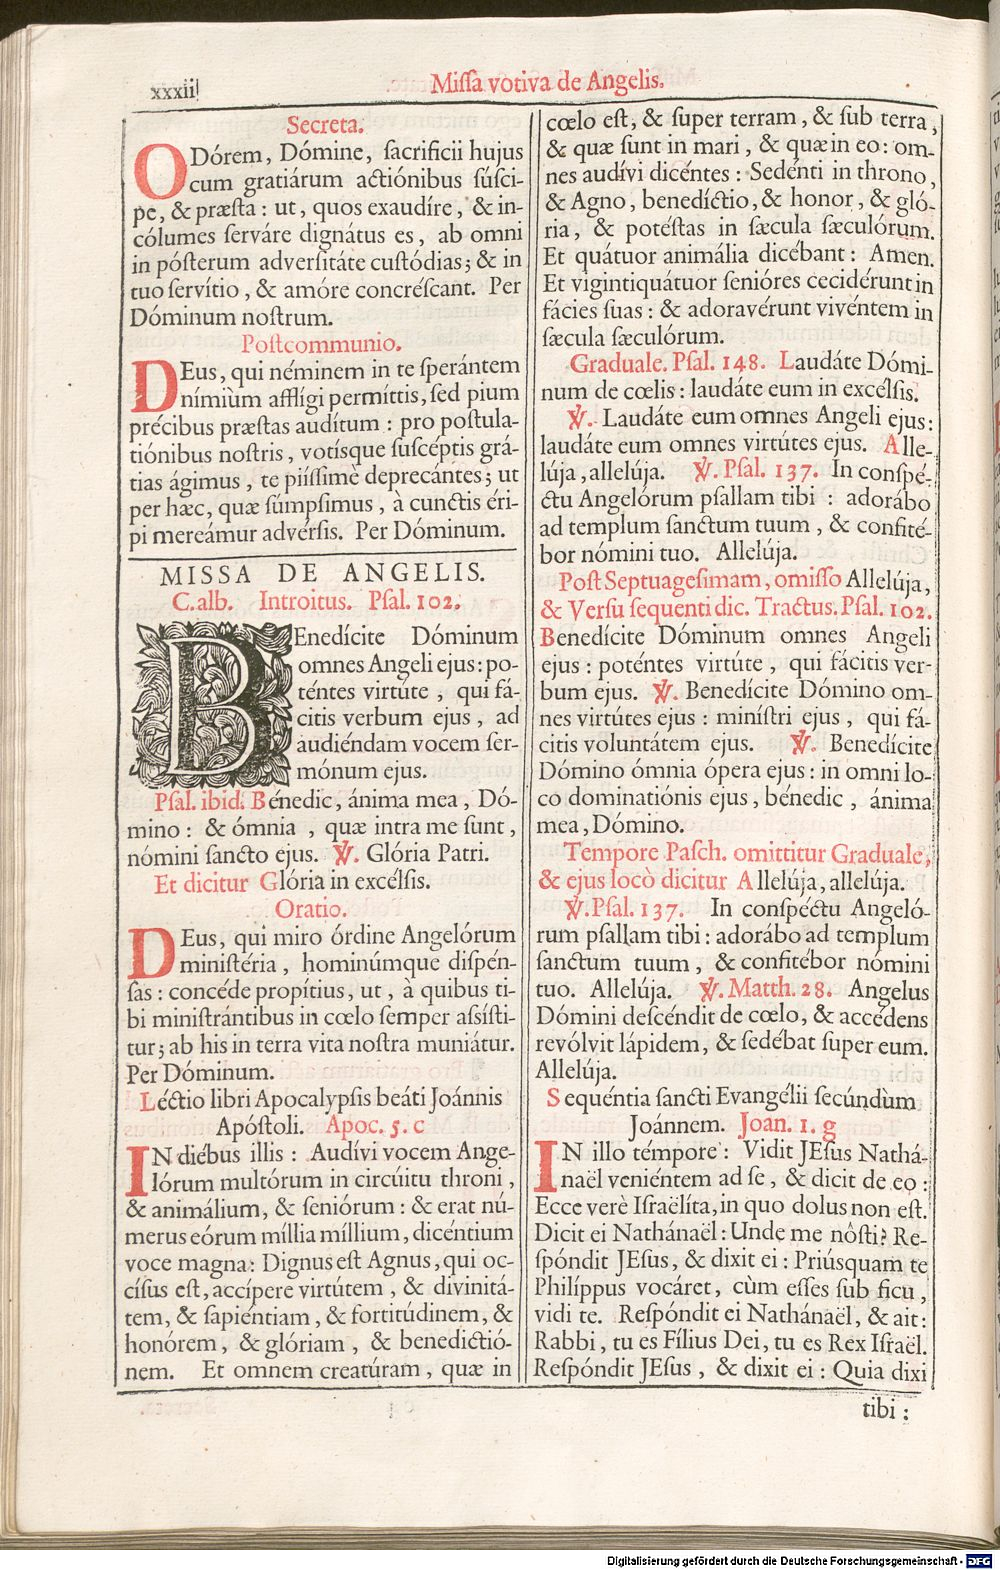 xxxii
Missa votiva de Angelis.
Secreta.
ODórem, Dómine, sacrificii hujus
cum gratiárum actiónibus súsci-
pe, & præsta: ut, quos exaudíre, & in-
cólumes serváre dignátus es, ab omni
in pósterum adversitáte custódias; & in
tuo servítio, & amóre concréscant. Per
Dóminum nostrum.
Postcommunio.
DEus, qui néminem in te sperántem
nímiùm afflígi permíttis, sed pium
précibus præstas audítum: pro postula-
tiónibus nostris, votísque suscéptis grá-
tias ágimus, te piíssimè deprecántes; ut
per hæc, quæ súmpsimus, à cunctis éri-
pi mereámur advérsis. Per Dóminum.
MISSA DE ANGELIS.
C. alb. Introitus. Psal. 102.
BEnedícite Dóminum
omnes Angeli ejus: po-
téntes virtúte, qui fá-
citis verbum ejus, ad
audiéndam vocem ser-
mónum ejus.
Psal. ibid. Bénedic, ánima mea, Dó-
mino: & ómnia, quæ intra me sunt,
nómini sancto ejus. ℣. Glória Patri.
Et dicitur Glória in excélsis.
Oratio.
DEus, qui miro órdine Angelórum
ministéria, hominúmque dispén-
sas: concéde propítius, ut, à quibus ti-
bi ministrántibus in cœlo semper assísti-
tur; ab his in terra vita nostra muniátur.
Per Dóminum.
Léctio libri Apocalypsis beáti Joánnis
Apóstoli. Apoc. 5. c
IN diébus illis: Audívi vocem Ange-
lórum multórum in circúitu throni,
& animálium, & seniórum: & erat nú-
merus eórum míllia míllium, dicéntium
voce magna: Dignus est Agnus, qui oc-
císus est, accípere virtútem, & divinitá-
tem, & sapiéntiam, & fortitúdinem, &
honórem, & glóriam, & benedictió-
nem. Et omnem creatúram, quæ in
cœlo est, & super terram, & sub terra,
& quæ sunt in mari, & quæ in eo: om-
nes audívi dicéntes: Sedénti in throno,
& Agno, benedíctio, & honor, & gló-
ria, & potéstas in sæcula sæculórum.
Et quátuor animália dicébant: Amen.
Et vigintiquátuor senióres cecidérunt in
fácies suas: & adoravérunt vivéntem in
sæcula sæculórum.
Graduale. Psal. 148. Laudáte Dómi-
num de cœlis: laudáte eum in excélsis.
℣. Laudáte eum omnes Angeli ejus:
laudáte eum omnes virtútes ejus. Alle-
lúja, allelúja. ℣. Psal. 137. In conspé-
ctu Angelórum psallam tibi: adorábo
ad templum sanctum tuum, & confité-
bor nómini tuo. Allelúja.
Post Septuagesimam, omisso Allelúja,
& Versu sequenti dic. Tractus. Psal. 102.
Benedícite Dóminum omnes Angeli
ejus: poténtes virtúte, qui fácitis ver-
bum ejus. ℣. Benedícite Dómino om-
nes virtútes ejus: minístri ejus, qui fá-
citis voluntátem ejus. ℣. Benedícite
Dómino ómnia ópera ejus: in omni lo-
co dominatiónis ejus, bénedic, ánima
mea, Dómino.
Tempore Pasch. omittitur Graduale,
& ejus locò dicitur Allelúja, allelúja.
℣. Psal. 137. In conspéctu Angeló-
rum psallam tibi: adorábo ad templum
sanctum tuum, & confitébor nómini
tuo. Allelúja. ℣. Matth. 28. Angelus
Dómini descéndit de cœlo, & accédens
revólvit lápidem, & sedébat super eum.
Allelúja.
Sequéntia sancti Evangélii secúndùm
Joánnem. Joan. 1. g
IN illo témpore: Vidit JEsus Nathá-
naël veniéntem ad se, & dicit de eo:
Ecce verè Israëlíta, in quo dolus non est.
Dicit ei Nathánaël: Unde me nôsti? Re-
spóndit JEsus, & dixit ei: Priúsquam te
Philíppus vocáret, cùm esses sub ficu,
vidi te. Respóndit ei Nathánaël, & ait:
Rabbi, tu es Fílius Dei, tu es Rex Israël.
Respóndit JEsus, & dixit ei: Quia dixi
tibi:
Digitalisierung gefördert durch die Deutsche Forschungsgemeinschaft - DFG